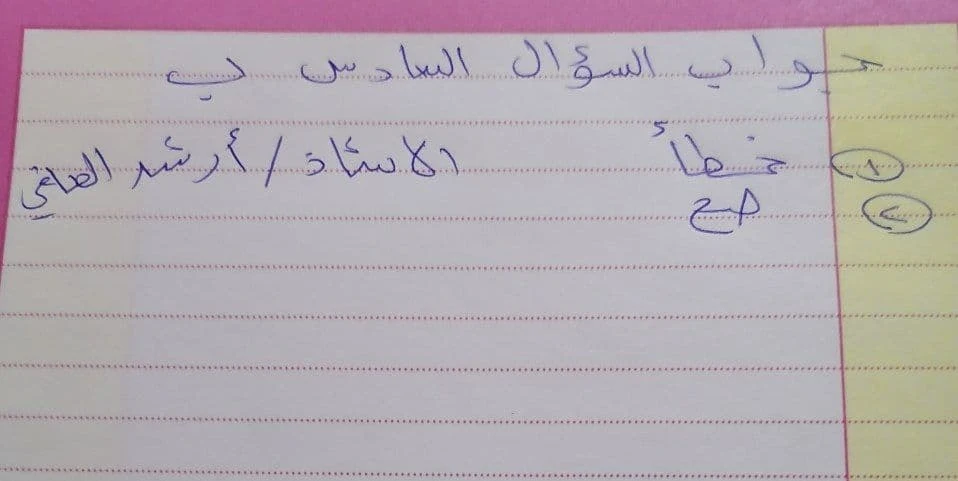 جواب السؤال السادس ب
١ خطأ الاستاذ / أرشد الصافي
٢ صح